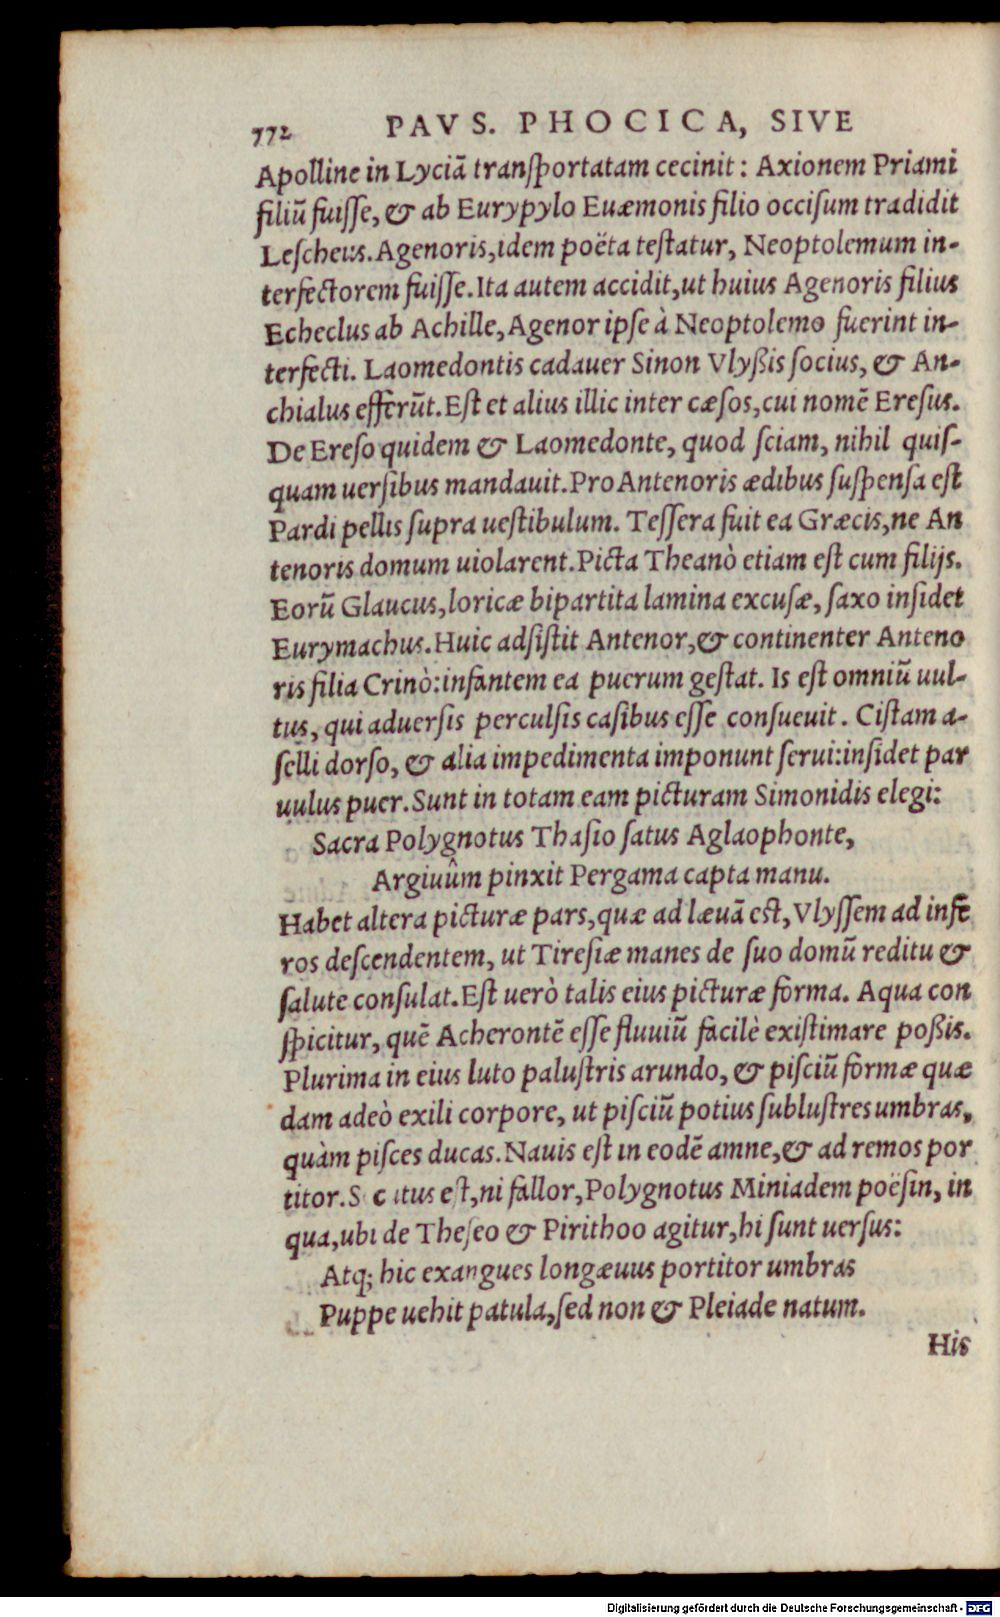 772 PAVS. PHOCICA, SIVE
Apolline in Lyciā transportatam cecinit : Axionem Priami
filiū fuisse, & ab Eurypylo Euæmonis filio occisum tradidit
Lescheus. Agenoris, idem poëta testatur, Neoptolemum in-
terfectorem fuisse. Ita autem accidit, ut huius Agenoris filius
Echeclus ab Achille, Agenor ipse à Neoptolemo fuerint in-
terfecti. Laomedontis cadauer Sinon Vlyßis socius, & An-
chialus efferūt. Est et alius illic inter cæsos, cui nomē Eresus.
De Ereso quidem & Laomedonte, quod sciam, nihil quis-
quam uersibus mandauit. Pro Antenoris ædibus suspensa est
Pardi pellis supra uestibulum. Tessera fuit ea Græcis, ne An
tenoris domum uiolarent. Picta Theanò etiam est cum filijs.
Eorū Glaucus, loricæ bipartita lamina excusæ, saxo insidet
Eurymachus. Huic adsistit Antenor, & continenter Anteno
ris filia Crinò: infantem ea puerum gestat. Is est omniū uul-
tus, qui aduersis perculsis casibus esse consueuit. Cistam a-
selli dorso, & alia impedimenta imponunt serui: insidet par
uulus puer. Sunt in totam eam picturam Simonidis elegi:
Sacra Polygnotus Thasio satus Aglaophonte,
Argiuûm pinxit Pergama capta manu.
Habet altera picturæ pars, quæ ad læuā est, Vlyssem ad infe
ros descendentem, ut Tiresiæ manes de suo domū reditu &
salute consulat. Est uerò talis eius picturæ forma. Aqua con
spicitur, quē Acherontē esse fluuiū facilè existimare poßis.
Plurima in eius luto palustris arundo, & pisciū formæ quæ
dam adeò exili corpore, ut pisciū potius sublustres umbras,
quàm pisces ducas. Nauis est in eodē amne, & ad remos por
titor. est, ni fallor, Polygnotus Miniadem poësin, in
qua, ubi de Theseo & Pirithoo agitur, hi sunt uersus:
Atq; hic exangues longæuus portitor umbras
Puppe uehit patula, sed non & Pleiade natum.
His
Digitalisierung gefördert durch die Deutsche Forschungsgemeinschaft - DFG